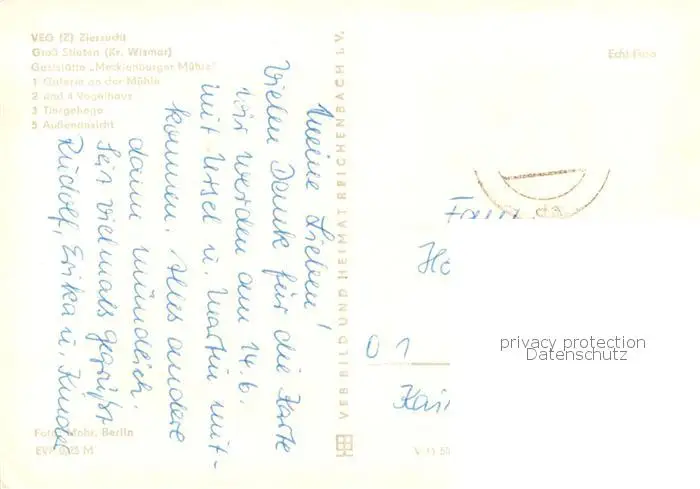 VEG (Z) Zierzucht
Groß Stieten (Kr. Wismar)
Gaststätte „Mecklenburger Mühle"
1 Galerie an der Mühle
2 und 4 Vogelhaus
3 Tiergehege
5 Außenansicht
Echt Foto
Meine Lieben!
Vielen Dank für die Karte
wir werden am 14.6.
mit Ursel u. Martin mit-
kommen. Alles andere
dann mündlich.
Seit vielmals gegrüßt
Rudolf, Erika u. Kinder
VEB BILD UND HEIMAT REICHENBACH i. V.
Fam
01
privacy protection
Datenschutz
Foto: Mohr, Berlin
EVP 0,25 M
V 11 50